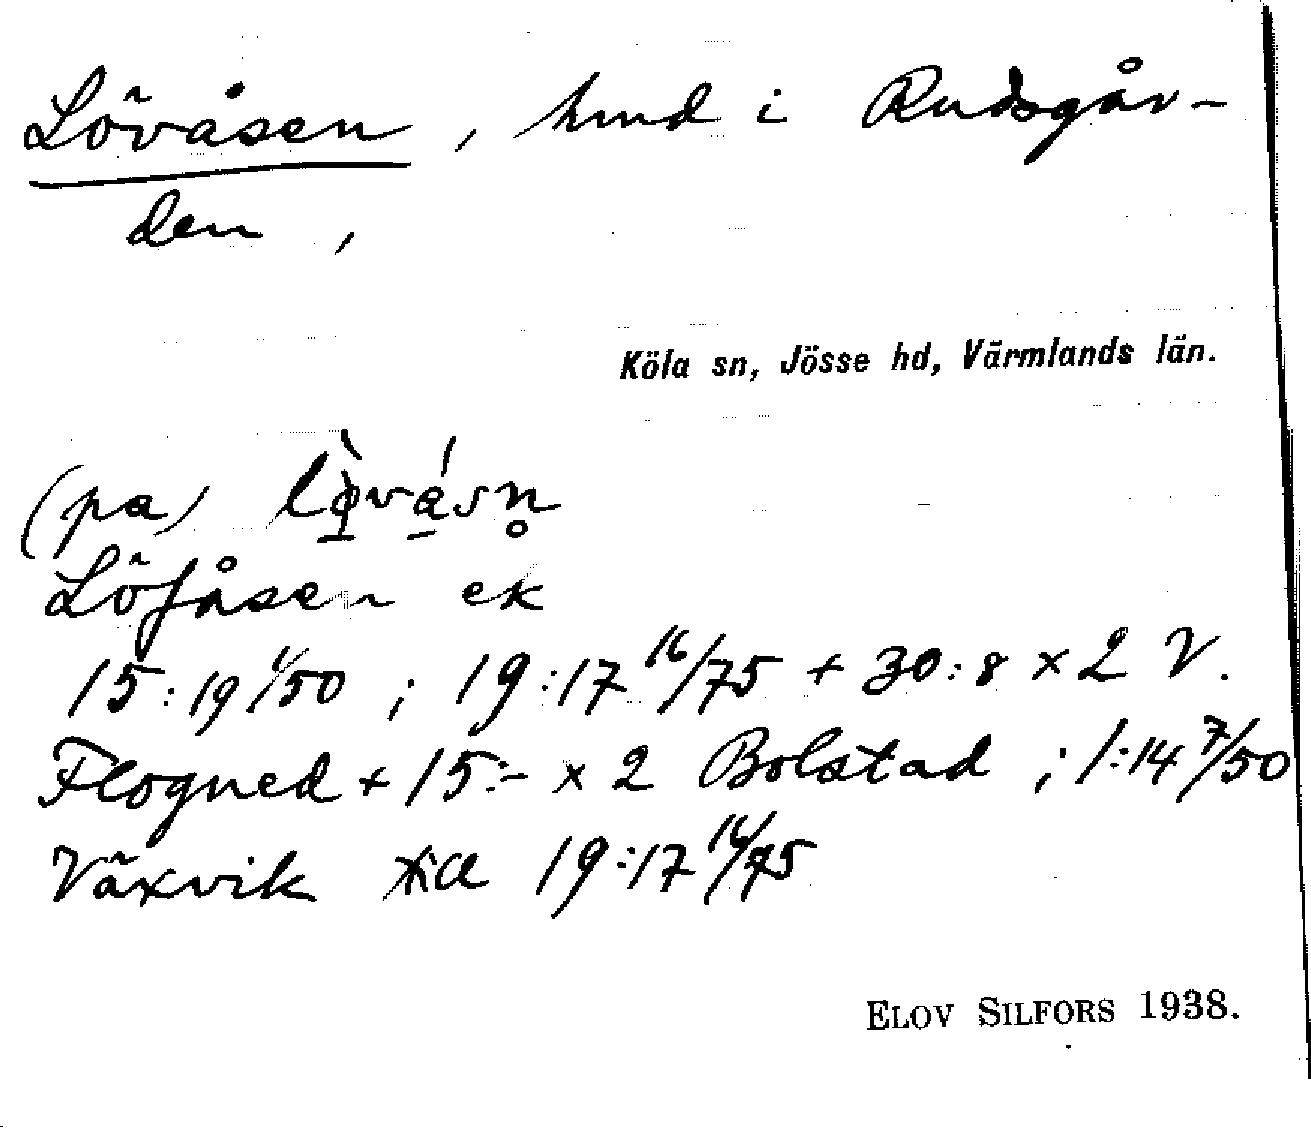 Lövåsen, hmd i Rudsgår-
den,
Köla sn, Jösse hd, Värmlands län.
(pa) lø̀vásn̥
Löfåsen ek
15:19 1/50; 19:17 16/75 + 30:8 x 2 V.
Flogned + 15:- x 2 Bolstad; 1:14 7/50
Växvik 19:17 16/75
ELOV SILFORS 1938.